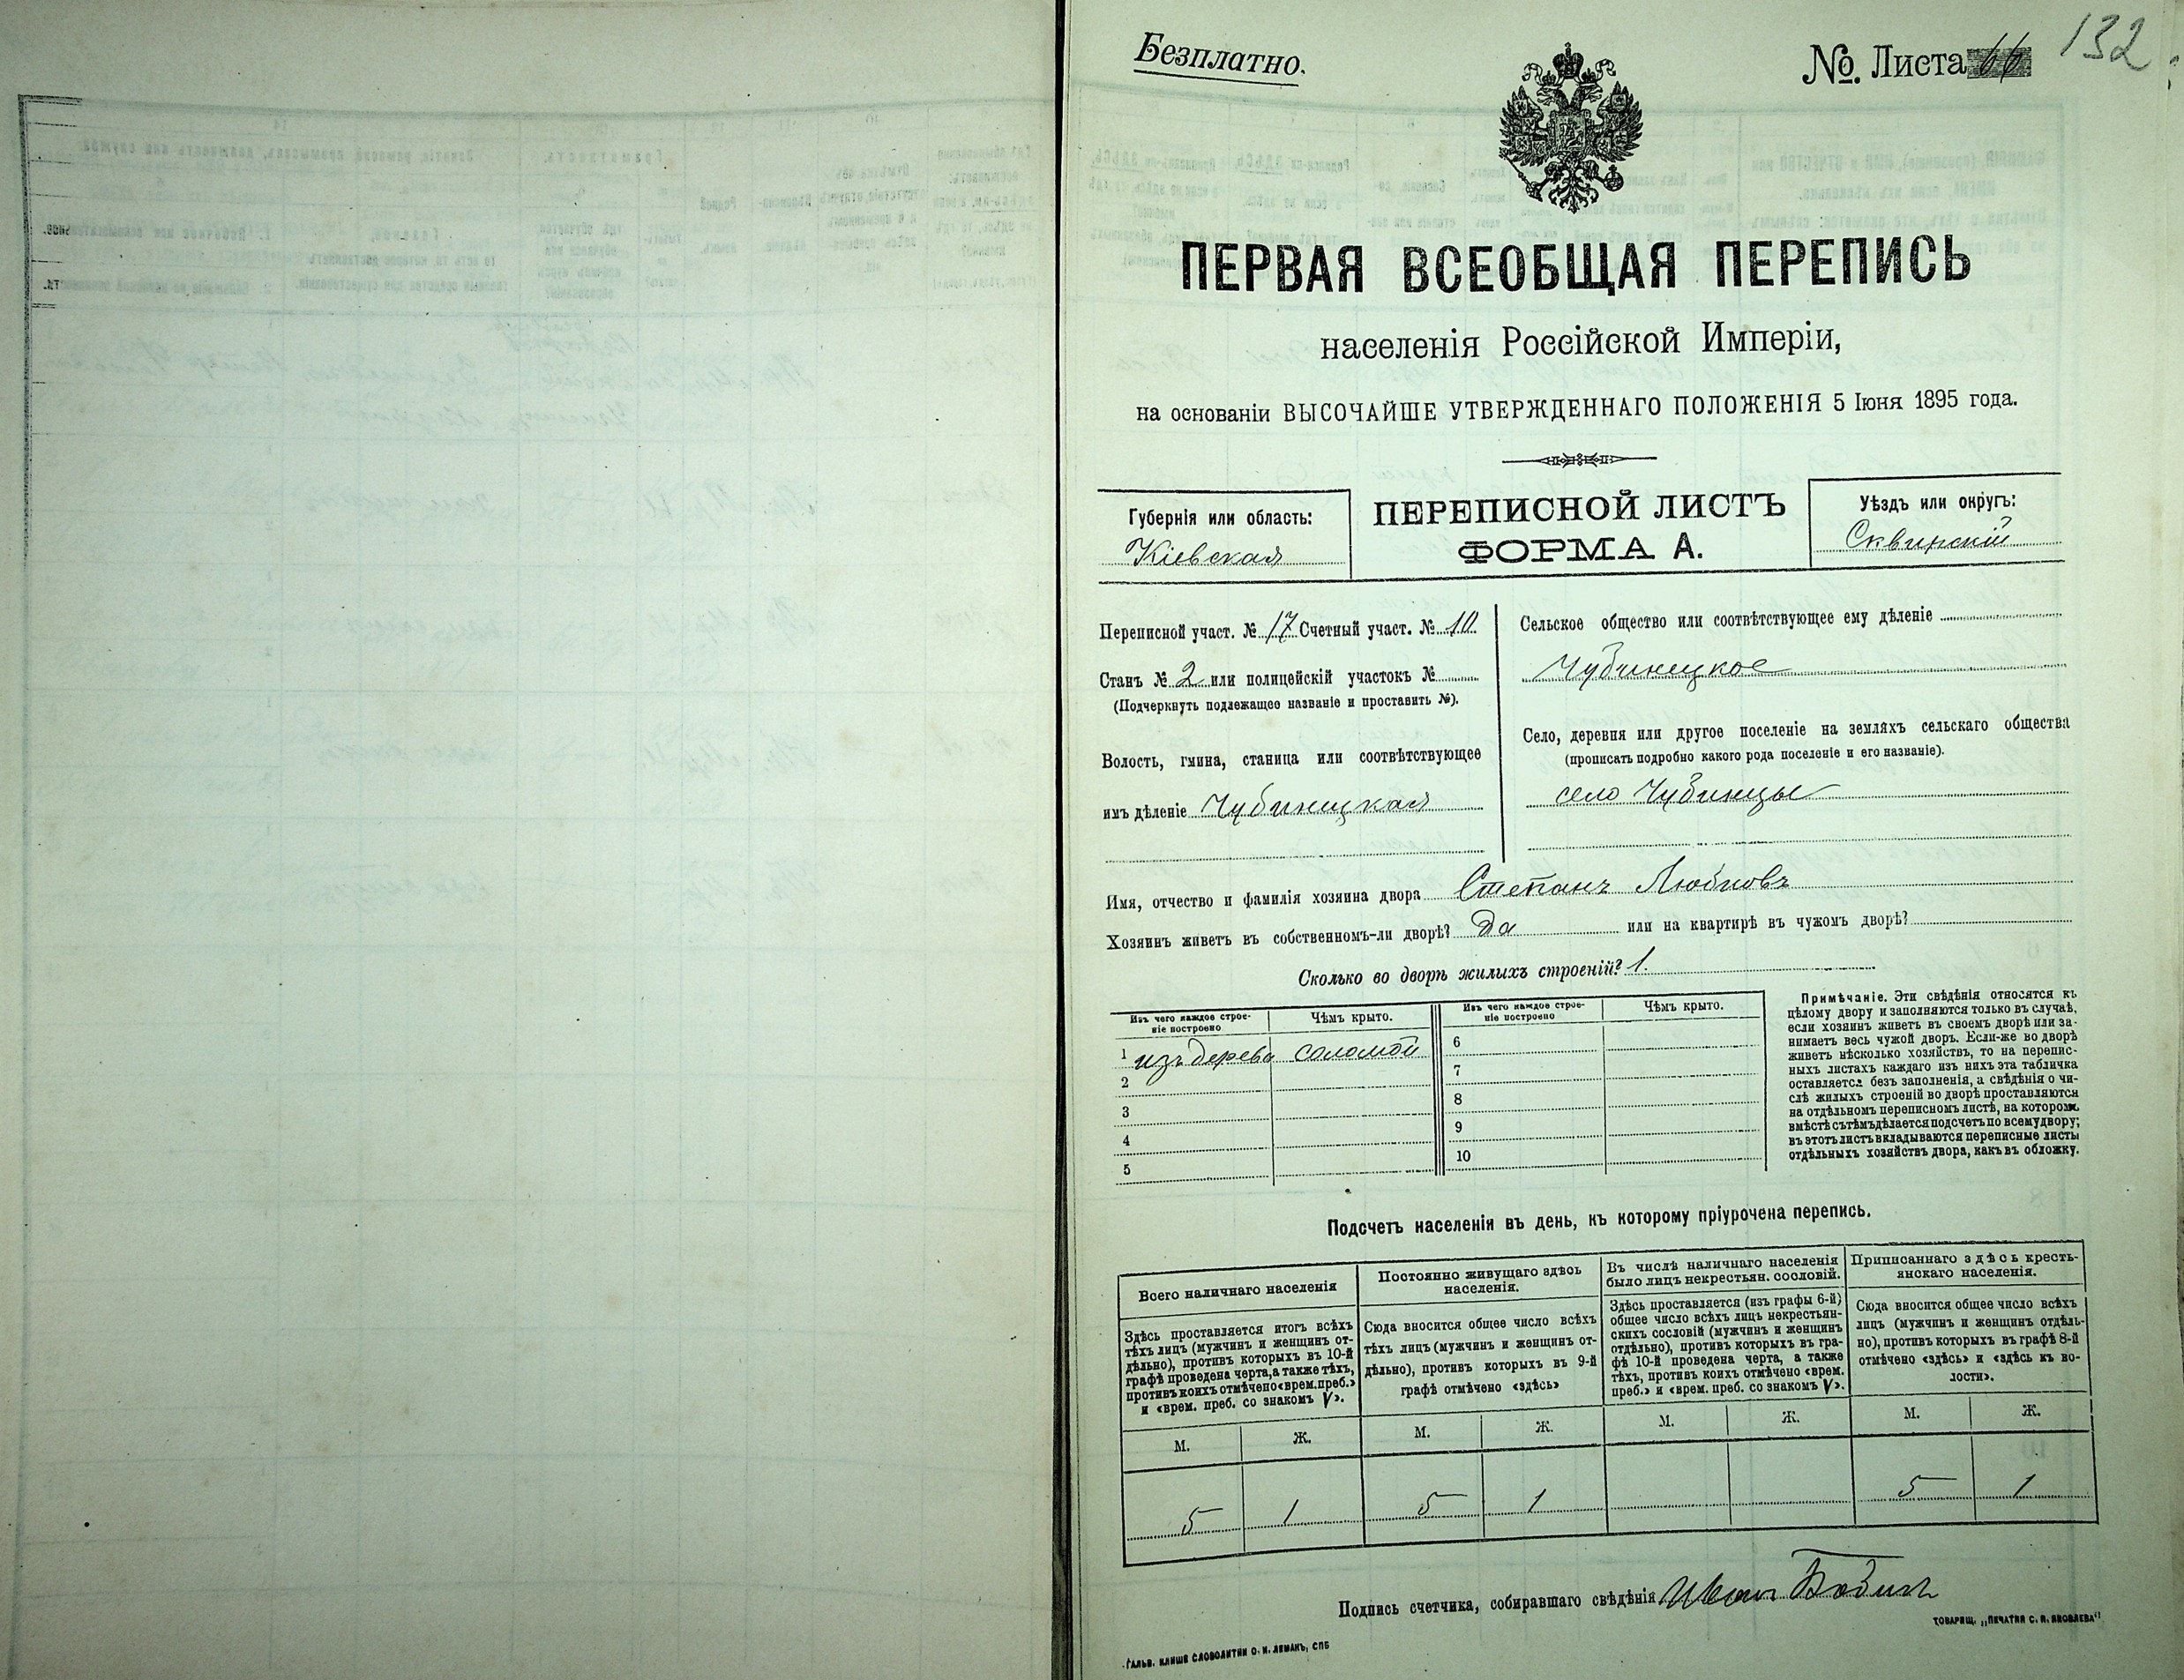 Безплатно.
№ Листа 66
132
ПЕРВАЯ ВСЕОБЩАЯ ПЕРЕПИСЬ
населенія Россійской Имперіи,
на основаніи ВЫСОЧАЙШЕ УТВЕРЖДЕННАГО ПОЛОЖЕНІЯ 5 Іюня 1895 года.
Губернія или область:
Кіевская
ПЕРЕПИСНОЙ ЛИСТЪ
ФОРМА А.
Уѣздъ или округъ:
Сквирскій
Переписной участ. № 17 Счетный участ. № 10
Станъ № 2 или полицейскій участокъ №
(Подчеркнуть подлежащее названіе и проставить №).
Волость, гмина, станица или соотвѣтствующее
имъ дѣленіе Чубинецкая
Сельское общество или соотвѣтствующее ему дѣленіе
Чубинецкое
Село, деревня или другое поселеніе на земляхъ сельскаго общества
(прописать подробно какого рода поселеніе и его названіе).
село Чубинцы
Имя, отчество и фамилія хозяина двора Степанъ
Хозяинъ живетъ въ собственномъ-ли дворѣ? Да или на квартирѣ въ чужомъ дворѣ?
Сколько во дворѣ жилыхъ строеній? 1.
Изъ чего каждое строе-
ніе построено
Чѣмъ крыто.
Изъ чего каждое строе-
ніе построено
Чѣмъ крыто.
1 изъ дерева соломой
2
3
4
5
6
7
8
9
10
Примѣчаніе. Эти свѣдѣнія относятся къ
цѣлому двору и заполняются только въ случаѣ,
если хозяинъ живетъ въ своемъ дворѣ или за-
нимаетъ весь чужой дворъ. Если-же во дворѣ
живетъ нѣсколько хозяйствъ, то на перепис-
ныхъ листахъ каждаго изъ нихъ эта табличка
оставляется безъ заполненія, а свѣдѣнія о чи-
слѣ жилыхъ строеній во дворѣ проставляются
на отдѣльномъ переписномъ листѣ, на которомъ
вмѣстѣ съ тѣмъ дѣлается подсчетъ по всему двору;
въ этотъ листъ вкладываются переписные листы
отдѣльныхъ хозяйствъ двора, какъ въ обложку.
Подсчетъ населенія въ день, къ которому пріурочена перепись.
Всего наличнаго населенія
Здѣсь проставляется итогъ всѣхъ
тѣхъ лицъ (мужчинъ и женщинъ от-
дѣльно), противъ которыхъ въ 10-й
графѣ проведена черта, а также тѣхъ,
противъ коихъ отмѣчено «врем. преб.»
и «врем. преб. со знакомъ V».
Постоянно живущаго здѣсь
населенія.
Сюда вносится общее число всѣхъ
тѣхъ лицъ (мужчинъ и женщинъ от-
дѣльно), противъ которыхъ въ 9-й
графѣ отмѣчено «здѣсь»
Въ числѣ наличнаго населенія
было лицъ некрестьян. сословій.
Здѣсь проставляется (изъ графы 6-й)
общее число всѣхъ лицъ некрестьян-
скихъ сословій (мужчинъ и женщинъ
отдѣльно), противъ которыхъ въ гра-
фѣ 10-й проведена черта, а также
тѣхъ, противъ коихъ отмѣчено «врем.
преб.» и «врем. преб. со знакомъ V».
Приписаннаго здѣсь кресть-
янскаго населенія.
Сюда вносится общее число всѣхъ
лицъ (мужчинъ и женщинъ отдѣль-
но), противъ которыхъ въ графѣ 8-й
отмѣчено «здѣсь» и «здѣсь къ во-
лости».
М. Ж. М. Ж. М. Ж. М. Ж.
5 1 5 1 5 1
Подпись счетчика, собиравшаго свѣдѣнія Иванъ
ГАЛЬВ. КЛИШЕ СЛОВОЛИТНИ О. И. ЛЕМАНЪ, СПБ
ТОВАРИЩ. „ПЕЧАТНЯ С. П. ЯКОВЛЕВА"